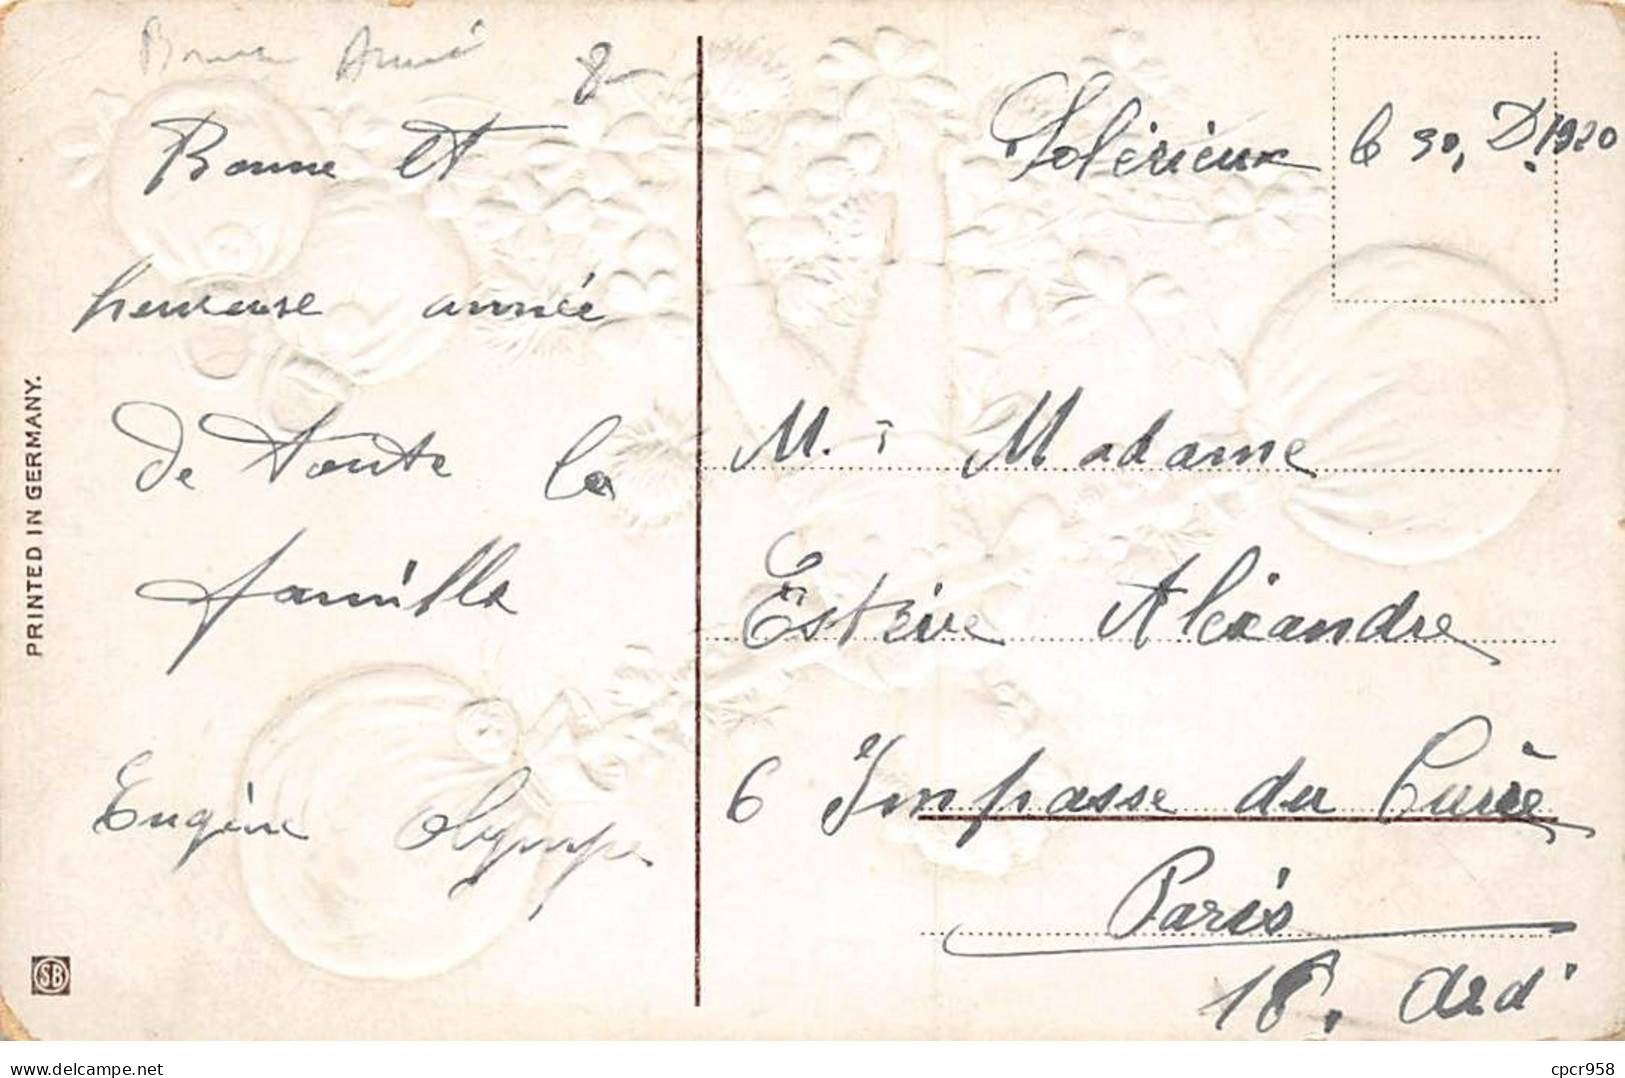 Bonne Anné
Bonne et
heureuse année
de toute la
famille
Eugène Olympe
PRINTED IN GERMANY.
SB
Solérieux le 30, D. 1920
M. i Madame
Estève Alexandre
6 Impasse du Curée
Paris
18. Ard
delcampe.net
cpcr958